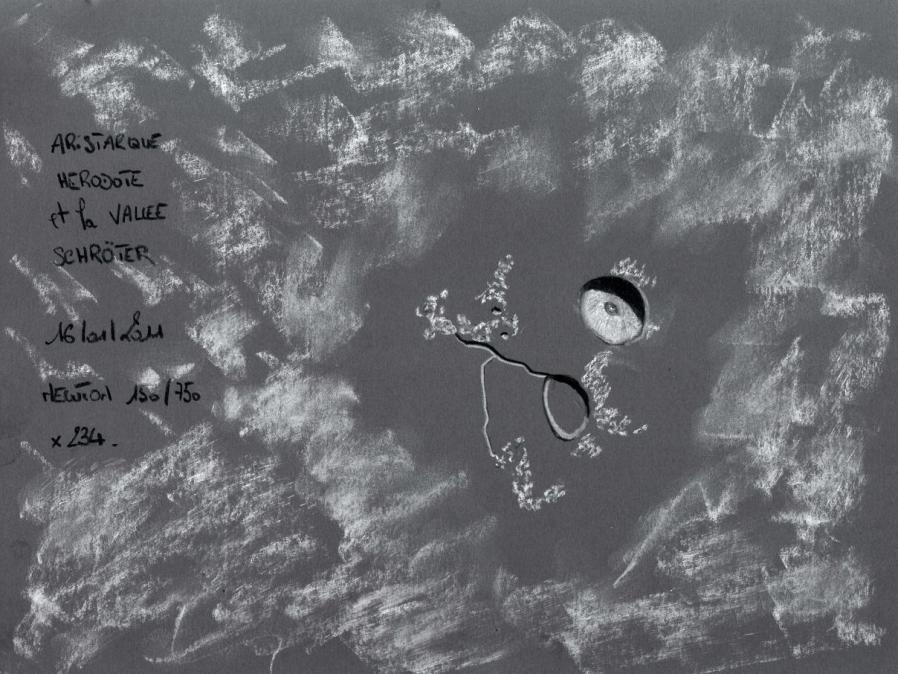 ARiSTARQUE
HERODOTE
et la VALLEE
SCHRÖTER
16/01/2011
NEWTON 150/750
x 234.